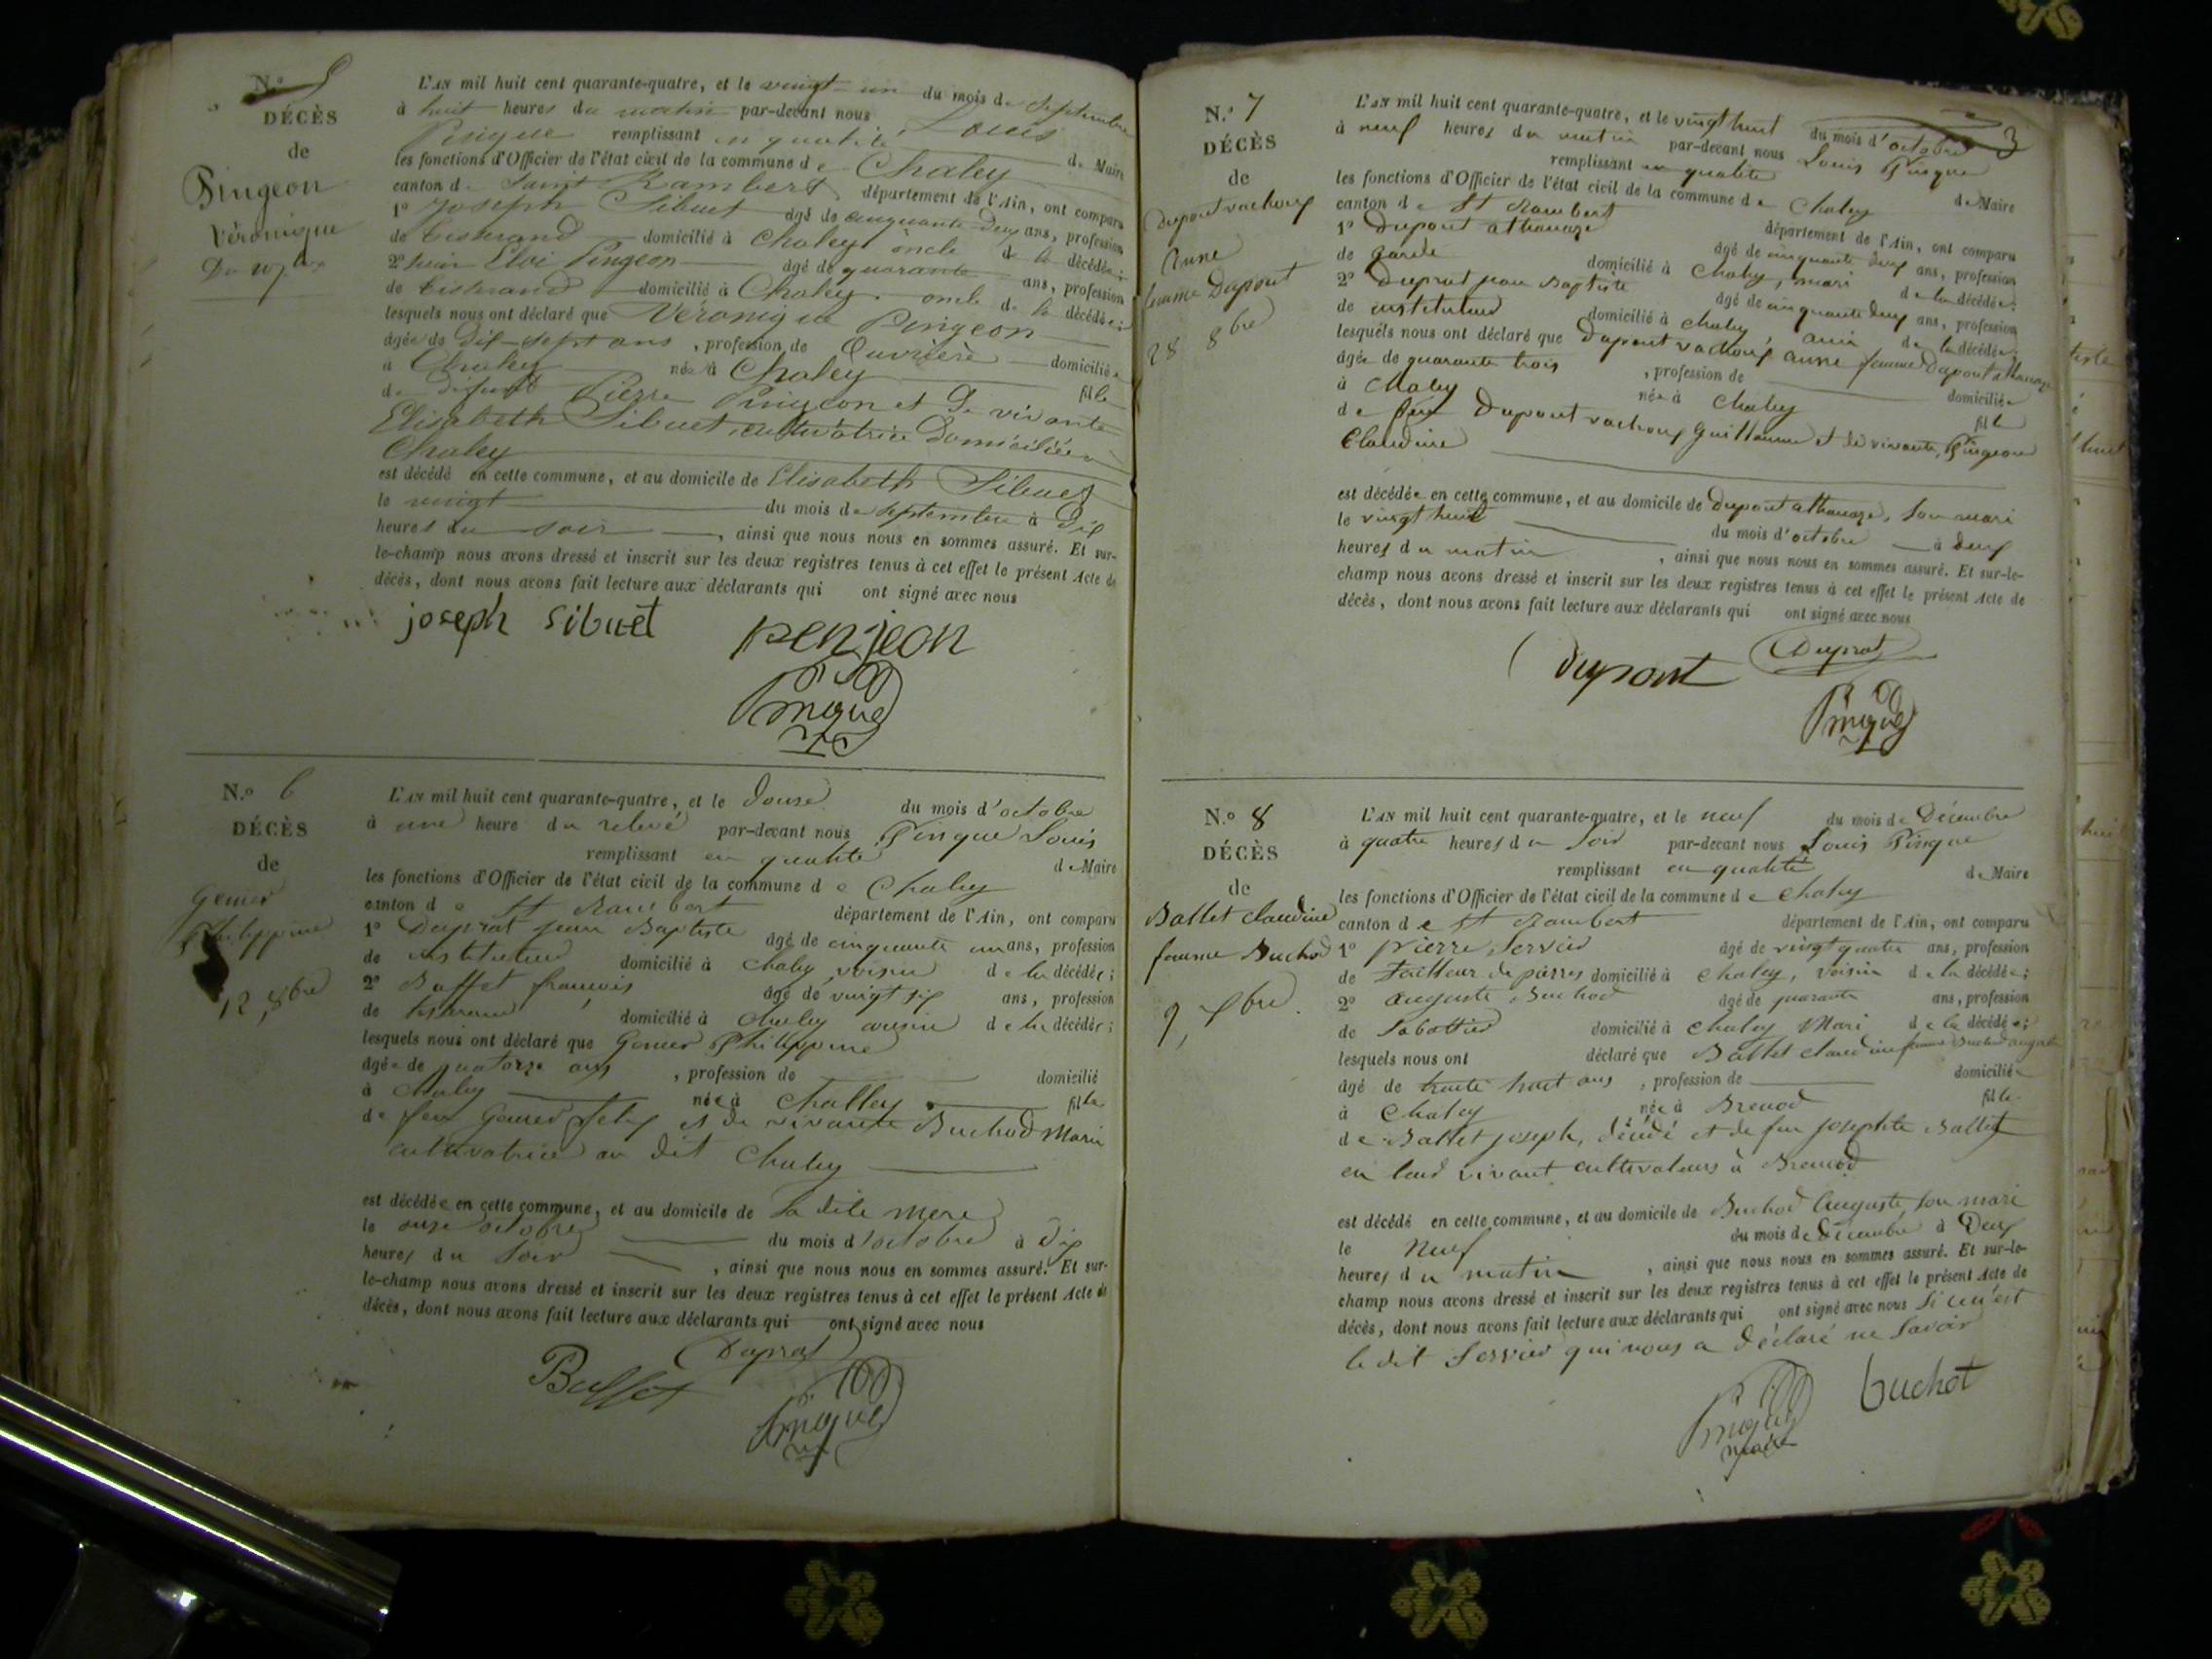 N.° 5
DÉCÈS
de
Pingeon
Véronique
L'AN mil huit cent quarante-quatre, et le vingt-un du mois de Septembre
à huit heures du matin par-devant nous Louis
Pingue remplissant en qualité de Maire
les fonctions d'Officier de l'état civil de la commune de Chaley
canton de Saint Rambert département de l'Ain, ont comparu
1° Joseph Sibuet âgé de cinquante-deux ans, profession
de tisserand domicilié à Chaley oncle de la décédée;
2° Eloi Pingeon âgé de quarante ans, profession
de tisserand domicilié à Chaley oncle de la décédée;
lesquels nous ont déclaré que Véronique Pingeon
âgée de dix-sept ans, profession de Ouvrière domiciliée
à Chaley née à Chaley fille
de défunt Pierre Pingeon et de vivante
Elisabeth Sibuet, cultivatrice domiciliée à
Chaley
est décédé en cette commune, et au domicile de Elisabeth Sibuet
le vingt du mois de septembre à dix
heures du soir, ainsi que nous nous en sommes assuré. Et sur-
le-champ nous avons dressé et inscrit sur les deux registres tenus à cet effet le présent Acte de
décès, dont nous avons fait lecture aux déclarants qui ont signé avec nous
joseph sibuet penjeon
Pingue
N.° 6
DÉCÈS
de
Gomer
Philippine
12, 8bre
L'AN mil huit cent quarante-quatre, et le douze du mois d'octobre
à une heure du relevé par-devant nous Pingue Louis
remplissant en qualité de Maire
les fonctions d'Officier de l'état civil de la commune de Chaley
canton de St Rambert département de l'Ain, ont comparu
1° Duprat jean Baptiste âgé de cinquante un ans, profession
de instituteur domicilié à Chaley, voisin de la décédée;
2° Buffet françois âgé de vingt six ans, profession
de tisserand domicilié à Chaley voisin de la décédée;
lesquels nous ont déclaré que Gomer Philippine
âgée de quatorze ans, profession de domicilié
à Chaley née à Challey fille
de feu Gomer felix et de vivante Buchod Marie
cultivatrice au dit Chaley
est décédée en cette commune, et au domicile de Sa dite mere
le onze octobre du mois d'octobre à dix
heures du soir, ainsi que nous nous en sommes assuré. Et sur-
le-champ nous avons dressé et inscrit sur les deux registres tenus à cet effet le présent Acte de
décès, dont nous avons fait lecture aux déclarants qui ont signé avec nous
Duprat
Buffet
Pingue
3
N.° 7
DÉCÈS
de
Dupont vachoux
Anne
femme Dupont
28 8bre
L'AN mil huit cent quarante-quatre, et le vingt huit du mois d'octobre
à neuf heures du matin par-devant nous Louis Pingue
remplissant en qualité de Maire
les fonctions d'Officier de l'état civil de la commune de Chaley
canton de St Rambert département de l'Ain, ont comparu
1° Dupont athanaze âgé de cinquante deux ans, profession
de garde domicilié à Chaley, mari de la décédée;
2° Duprat jean Baptiste âgé de cinquante deux ans, profession
de instituteur domicilié à Chaley ami de la décédée;
lesquels nous ont déclaré que Dupont vachoux anne femme Dupont athanaze
âgée de quarante trois, profession de domiciliée
à Chaley née à Chaley fille
de feu Dupont vachoux Guillaume et de vivante, Pingeon
Claudine
est décédée en cette commune, et au domicile de Dupont athanaze, son mari
le vingt huit du mois d'octobre à deux
heures du matin, ainsi que nous nous en sommes assuré. Et sur-le-
champ nous avons dressé et inscrit sur les deux registres tenus à cet effet le présent Acte de
décès, dont nous avons fait lecture aux déclarants qui ont signé avec nous
Dupont Duprat
Pingue
N.° 8
DÉCÈS
de
Ballet claudine
femme Buchod
9, Xbre
L'AN mil huit cent quarante-quatre, et le neuf du mois de Décembre
à quatre heures du Soir par-devant nous Louis Pingue
remplissant en qualité de Maire
les fonctions d'Officier de l'état civil de la commune de Chaley
canton de St Rambert département de l'Ain, ont comparu
1° Pierre Servier âgé de vingt quatre ans, profession
de Tailleur de pierres domicilié à Chaley, voisin de la décédée;
2° auguste Buchod âgé de quarante ans, profession
de Sabottier domicilié à Chaley Mari de la décédée;
lesquels nous ont déclaré que Ballet claudine femme Buchod auguste
âgé de trente huit ans, profession de domiciliée
à Chaley née à Brenod fille
de Ballet joseph, décédé et de feu josephte Ballet
en leur vivant cultivateurs à Brenod
est décédé en cette commune, et au domicile de Buchod Auguste son mari
le Neuf du mois de Décembre à Deux
heures du matin, ainsi que nous nous en sommes assuré. Et sur-le-
champ nous avons dressé et inscrit sur les deux registres tenus à cet effet le présent Acte de
décès, dont nous avons fait lecture aux déclarants qui ont signé avec nous Si ce n'est
le dit Servier qui nous a déclaré ne Savoir
Pingue buchot
maire